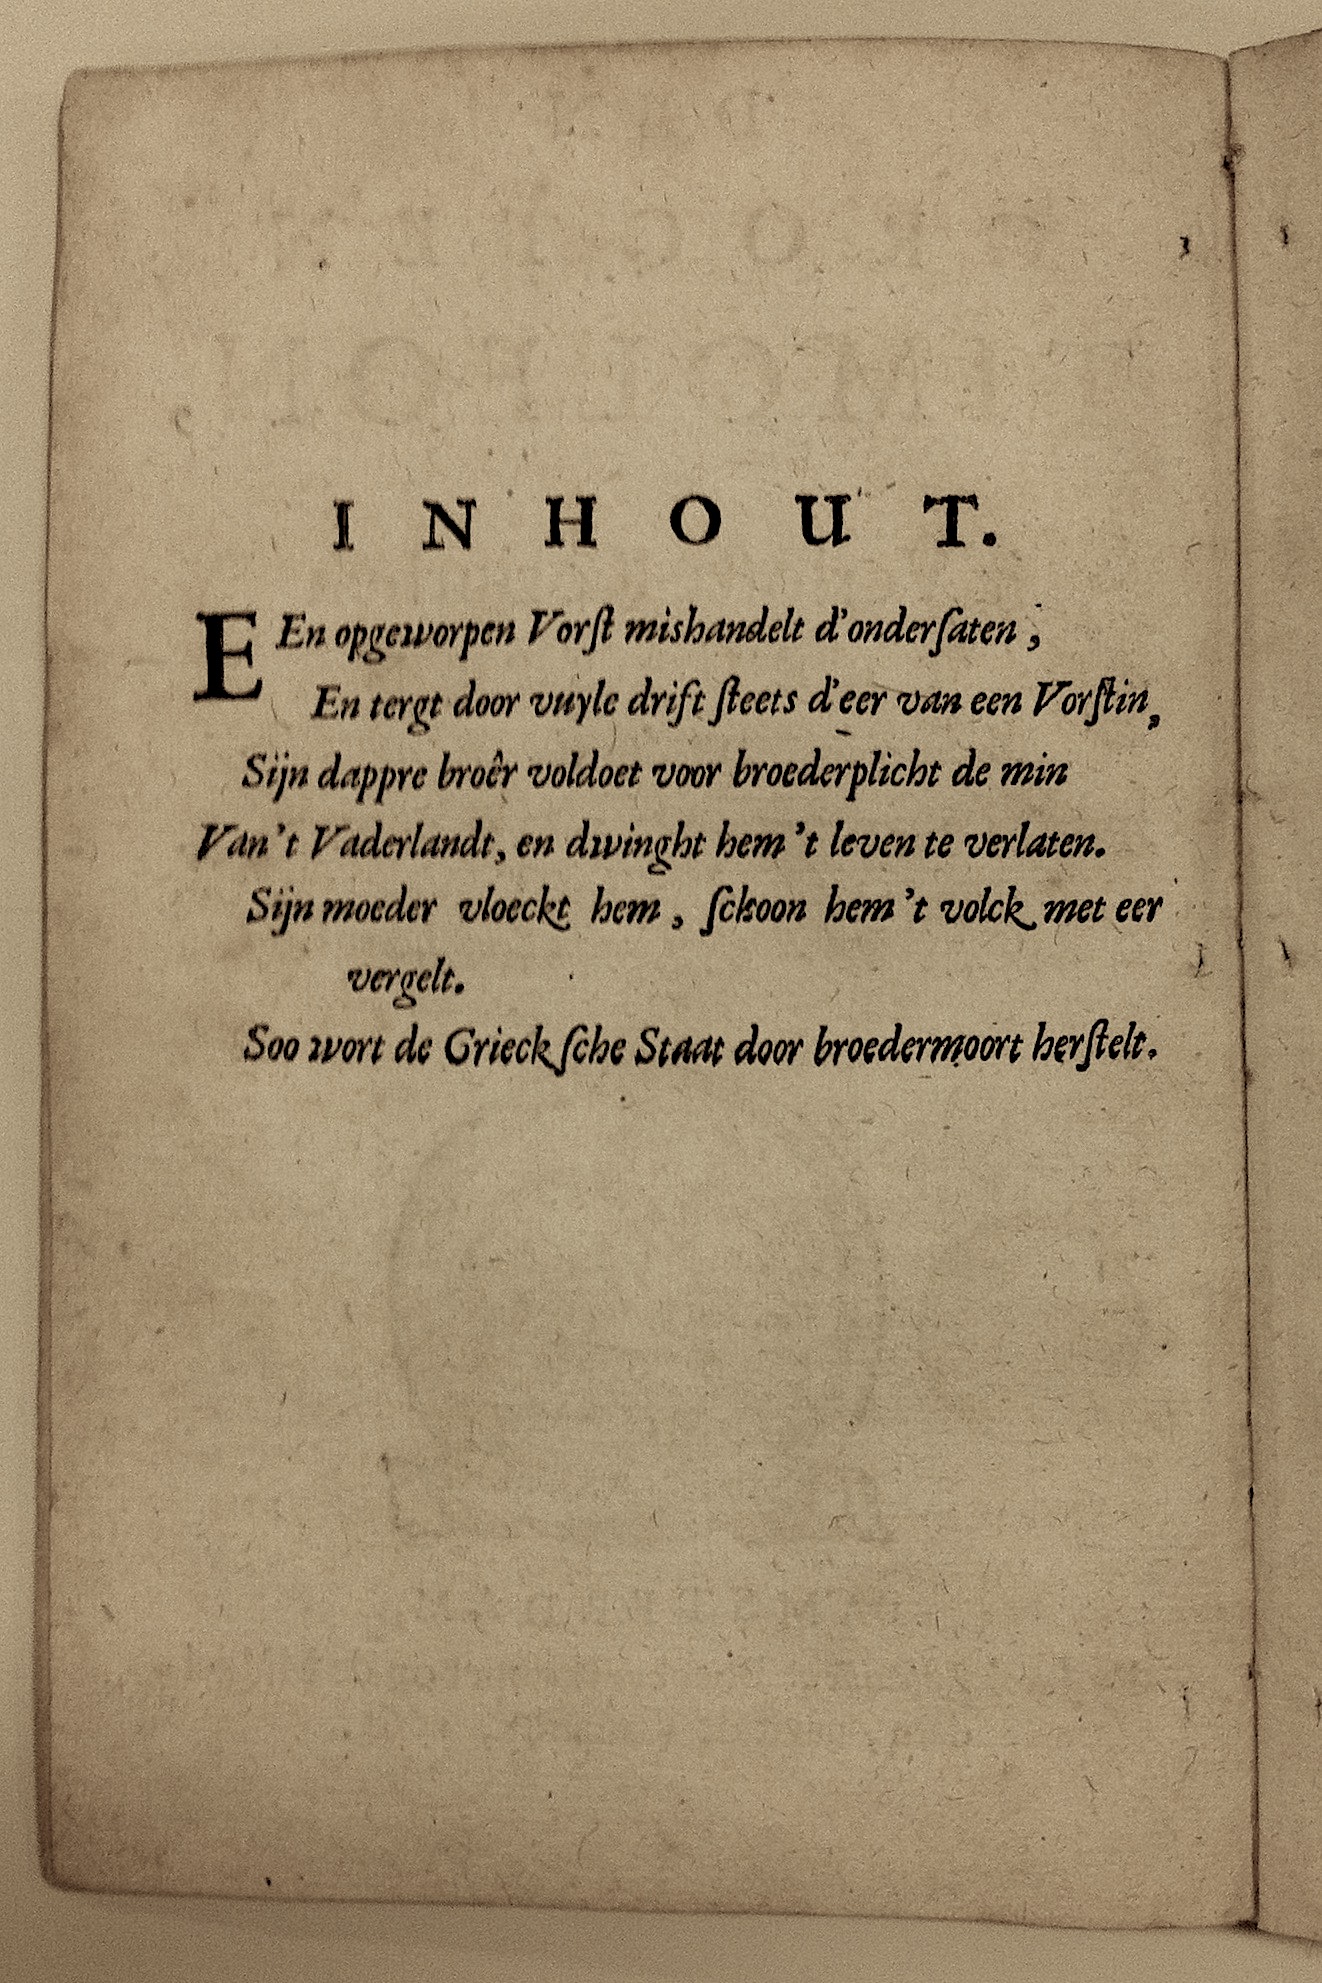 INHOUT.
EEn opgeworpen Vorſt mishandelt d'onderſaten,
En tergt door vuyle drift ſteets d'eer van een Vorſtin,
Sijn dappre broêr voldoet voor broederplicht de min
Van 't Vaderlandt, en dwinght hem 't leven te verlaten.
Sijn moeder vloeckt hem, ſchoon hem 't volck met eer
vergelt.
Soo wort de Grieckſche Staat door broedermoort herſtelt.